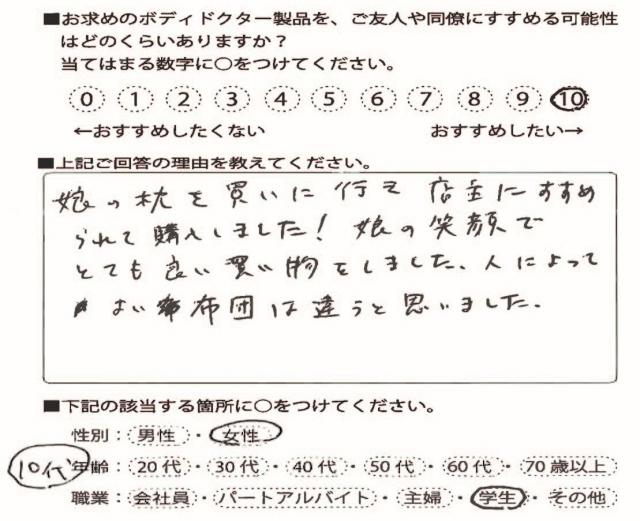 ■お求めのボディドクター製品を、ご友人や同僚にすすめる可能性
はどのくらいありますか?
当てはまる数字に○をつけてください。
0 1 2 3 4 5 6 7 8 9 10
←おすすめしたくない おすすめしたい→
■上記ご回答の理由を教えてください。
娘の枕を買いに行き 店主にすすめ
られて購入しました! 娘の笑顔で
とても良い買い物をしました、人によって
よい布団は違うと思いました.
■下記の該当する箇所に○をつけてください。
性別:男性・女性
10代 年齢:20代・30代・40代・50代・60代・70歳以上
職業:会社員・パートアルバイト・主婦・学生・その他